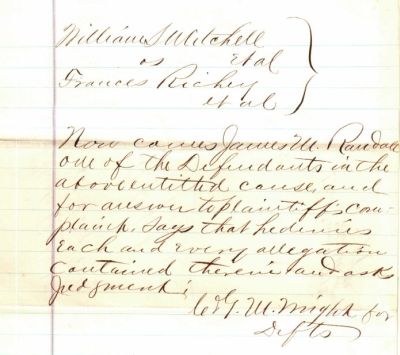 William S Mitchell
vs et al
Frances Richey
et al
Now comes James M. Randall
one of the Defendants in the
above entitled cause, and
for answer to plaintiff's com-
plaint. Says that he denies
Each and Every allegation
contained therein and asks
Judgment;
G. M. Wright for
Defts